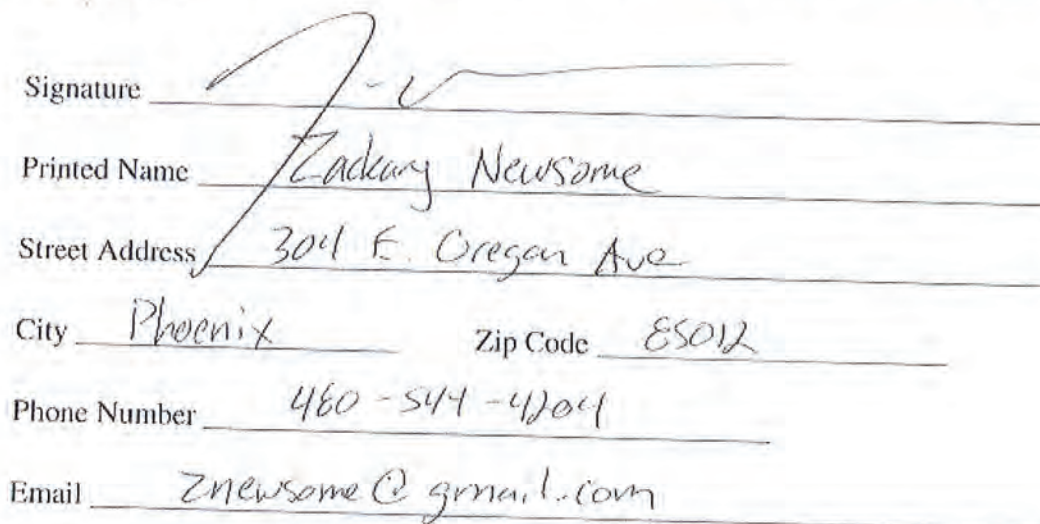 Signature
Printed Name Zackary Newsome
Street Address 304 E. Oregon Ave
City Phoenix Zip Code 85012
Phone Number 480-544-4204
Email znewsome@gmail.com